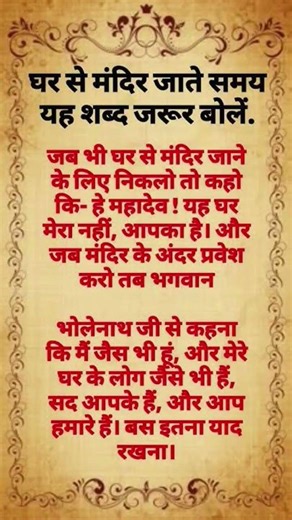 घर से मंदिर जाते समय
यह शब्द जरूर बोलें.
जब भी घर से मंदिर जाने
के लिए निकलो तो कहो
कि- हे महादेव ! यह घर
मेरा नहीं, आपका है। और
जब मंदिर के अंदर प्रवेश
करो तब भगवान
भोलेनाथ जी से कहना
कि मैं जैस भी हूं, और मेरे
घर के लोग जैसे भी हैं,
सद आपके हैं, और आप
हमारे हैं। बस इतना याद
रखना।